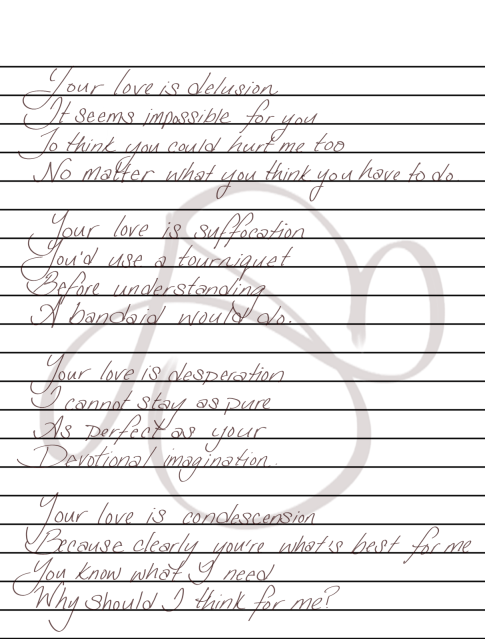 Your love is delusion
It seems impossible for you
To think you could hurt me too
No matter what you think you have to do

Your love is suffocation
You'd use a tourniquet
Before understanding
A bandaid would do.

Your love is desperation
I cannot stay as pure
As perfect as your
Devotional imagination.

Your love is condescension
Because clearly you're what's best for me
You know what I need
Why should I think for me?